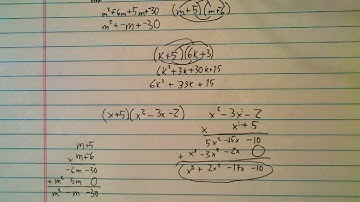 m²+6m+5m+30 (m+5)(m+6)
m²+-m+-30
(k+5)(6k+3)
6k²+3k+30k+15
6k²+33k+15
(x+5)(x²-3x-2)
x²-3x-2
x x+5
5x²-15x-10
+x³-3x²-2x 0
x³+2x²-17x-10
m+5
x m-6
-6m-30
+m² 5m 0
m²-m-30